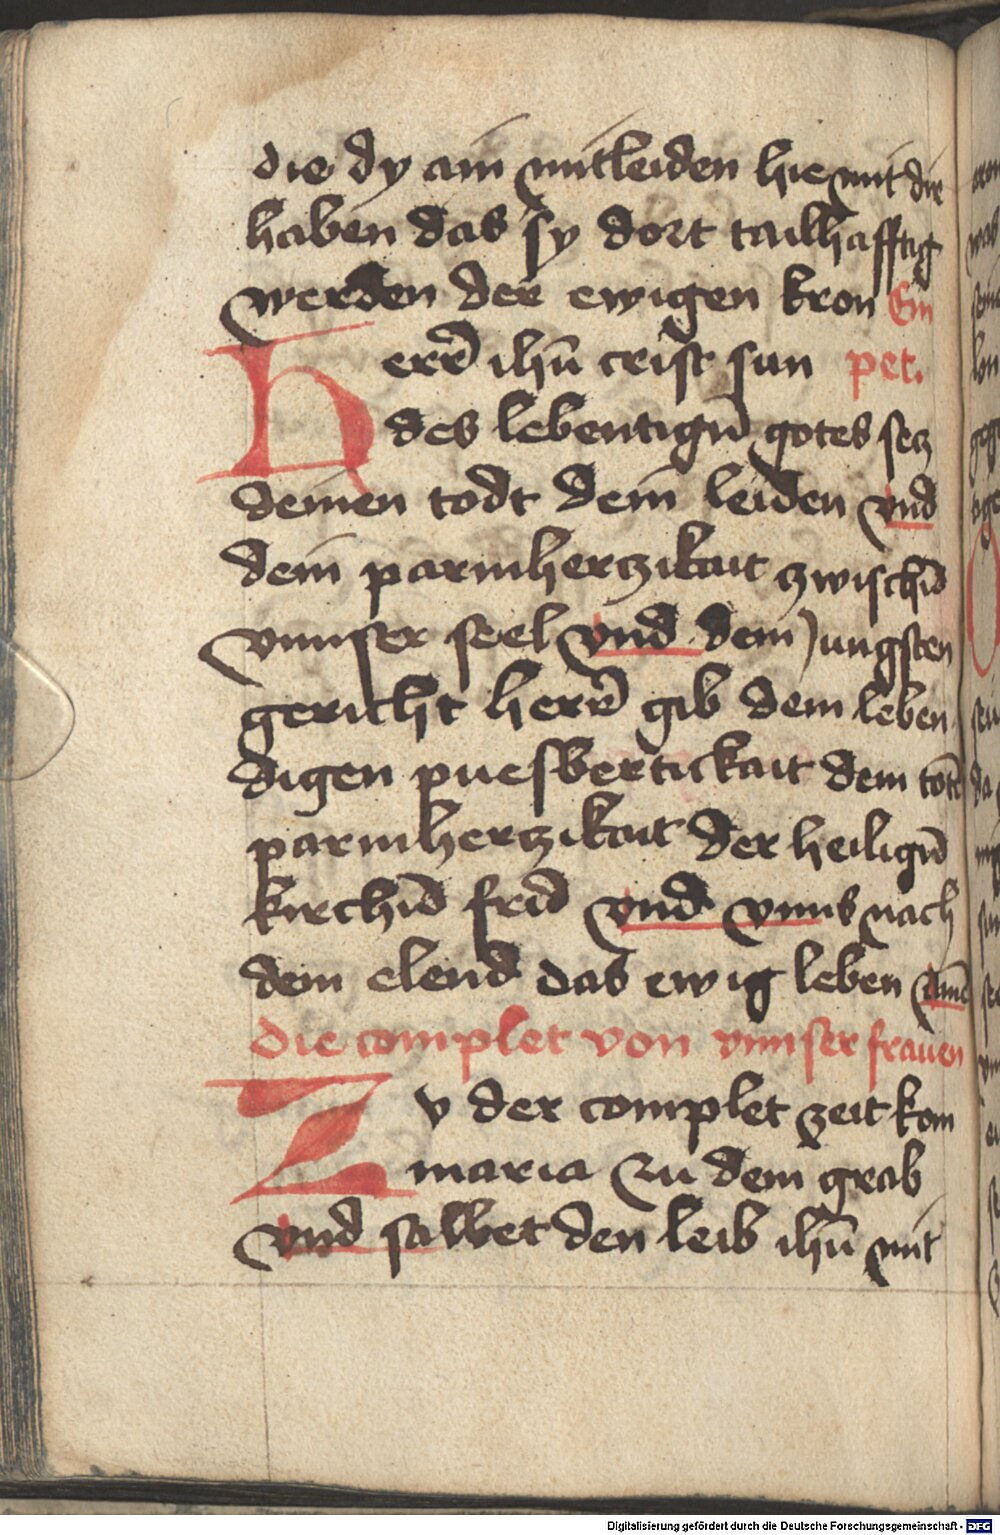 die dy ain mitleiden hie mit dir
haben das sy dort tailhafftig
werden der ewigen kron Ein
Herr̄ ihū crist sun pet.
des lebentigū gotes secz
deinen todt dein leiden vnd
dein parmherczikait zwischn̄
vnnser seel vnd dem Jungsten
gericht herr̄ gib dem leben
digen puesvertickait dem totē
parmherczikait der heiligū
kirchn̄ frid vnd vnns nach
dem elend das ewig leben amē
die complet von vnnser frauen
Zv der complet zeit kom
maria zu dem grab
vnd salbet den leib ihū mit
Digitalisierung gefördert durch die Deutsche Forschungsgemeinschaft - DFG